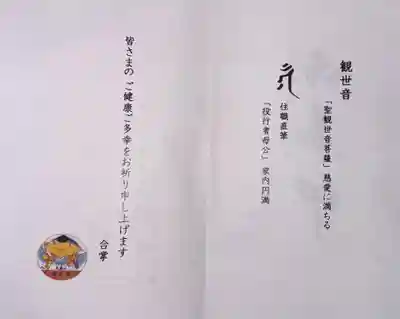 観世音
「聖観世音菩薩」慈愛に満ちる
住職直筆
「役行者母公」家内円満
皆さまの ご健康ご多幸をお祈り申し上げます
合掌